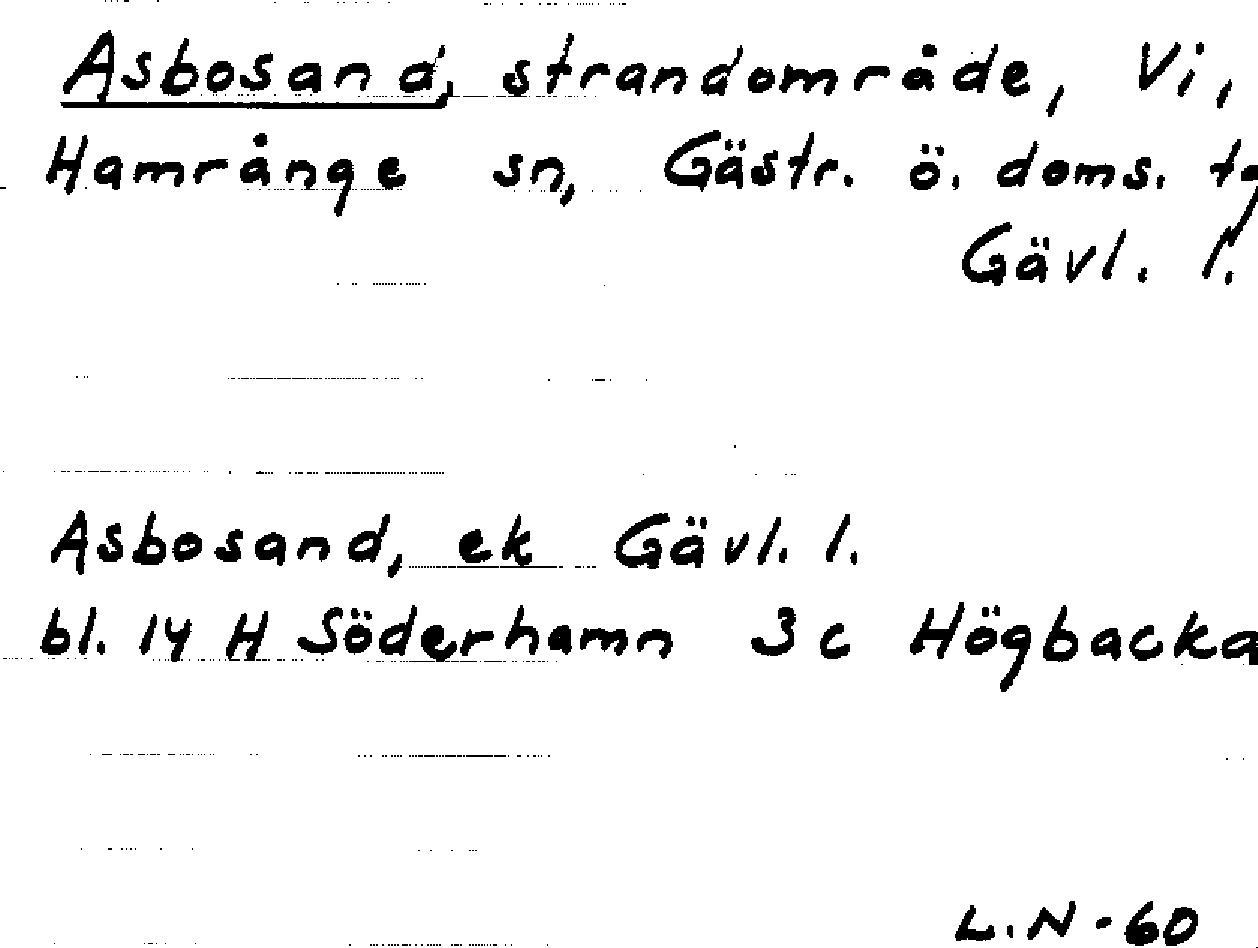 Asbosand, strandområde, Vi,
Hamrånge sn, Gästr. ö. doms. tg
Gävl. l.
Asbosand, ek Gävl. l.
bl. 14 H Söderhamn 3 c Högbacka
L.N - 60